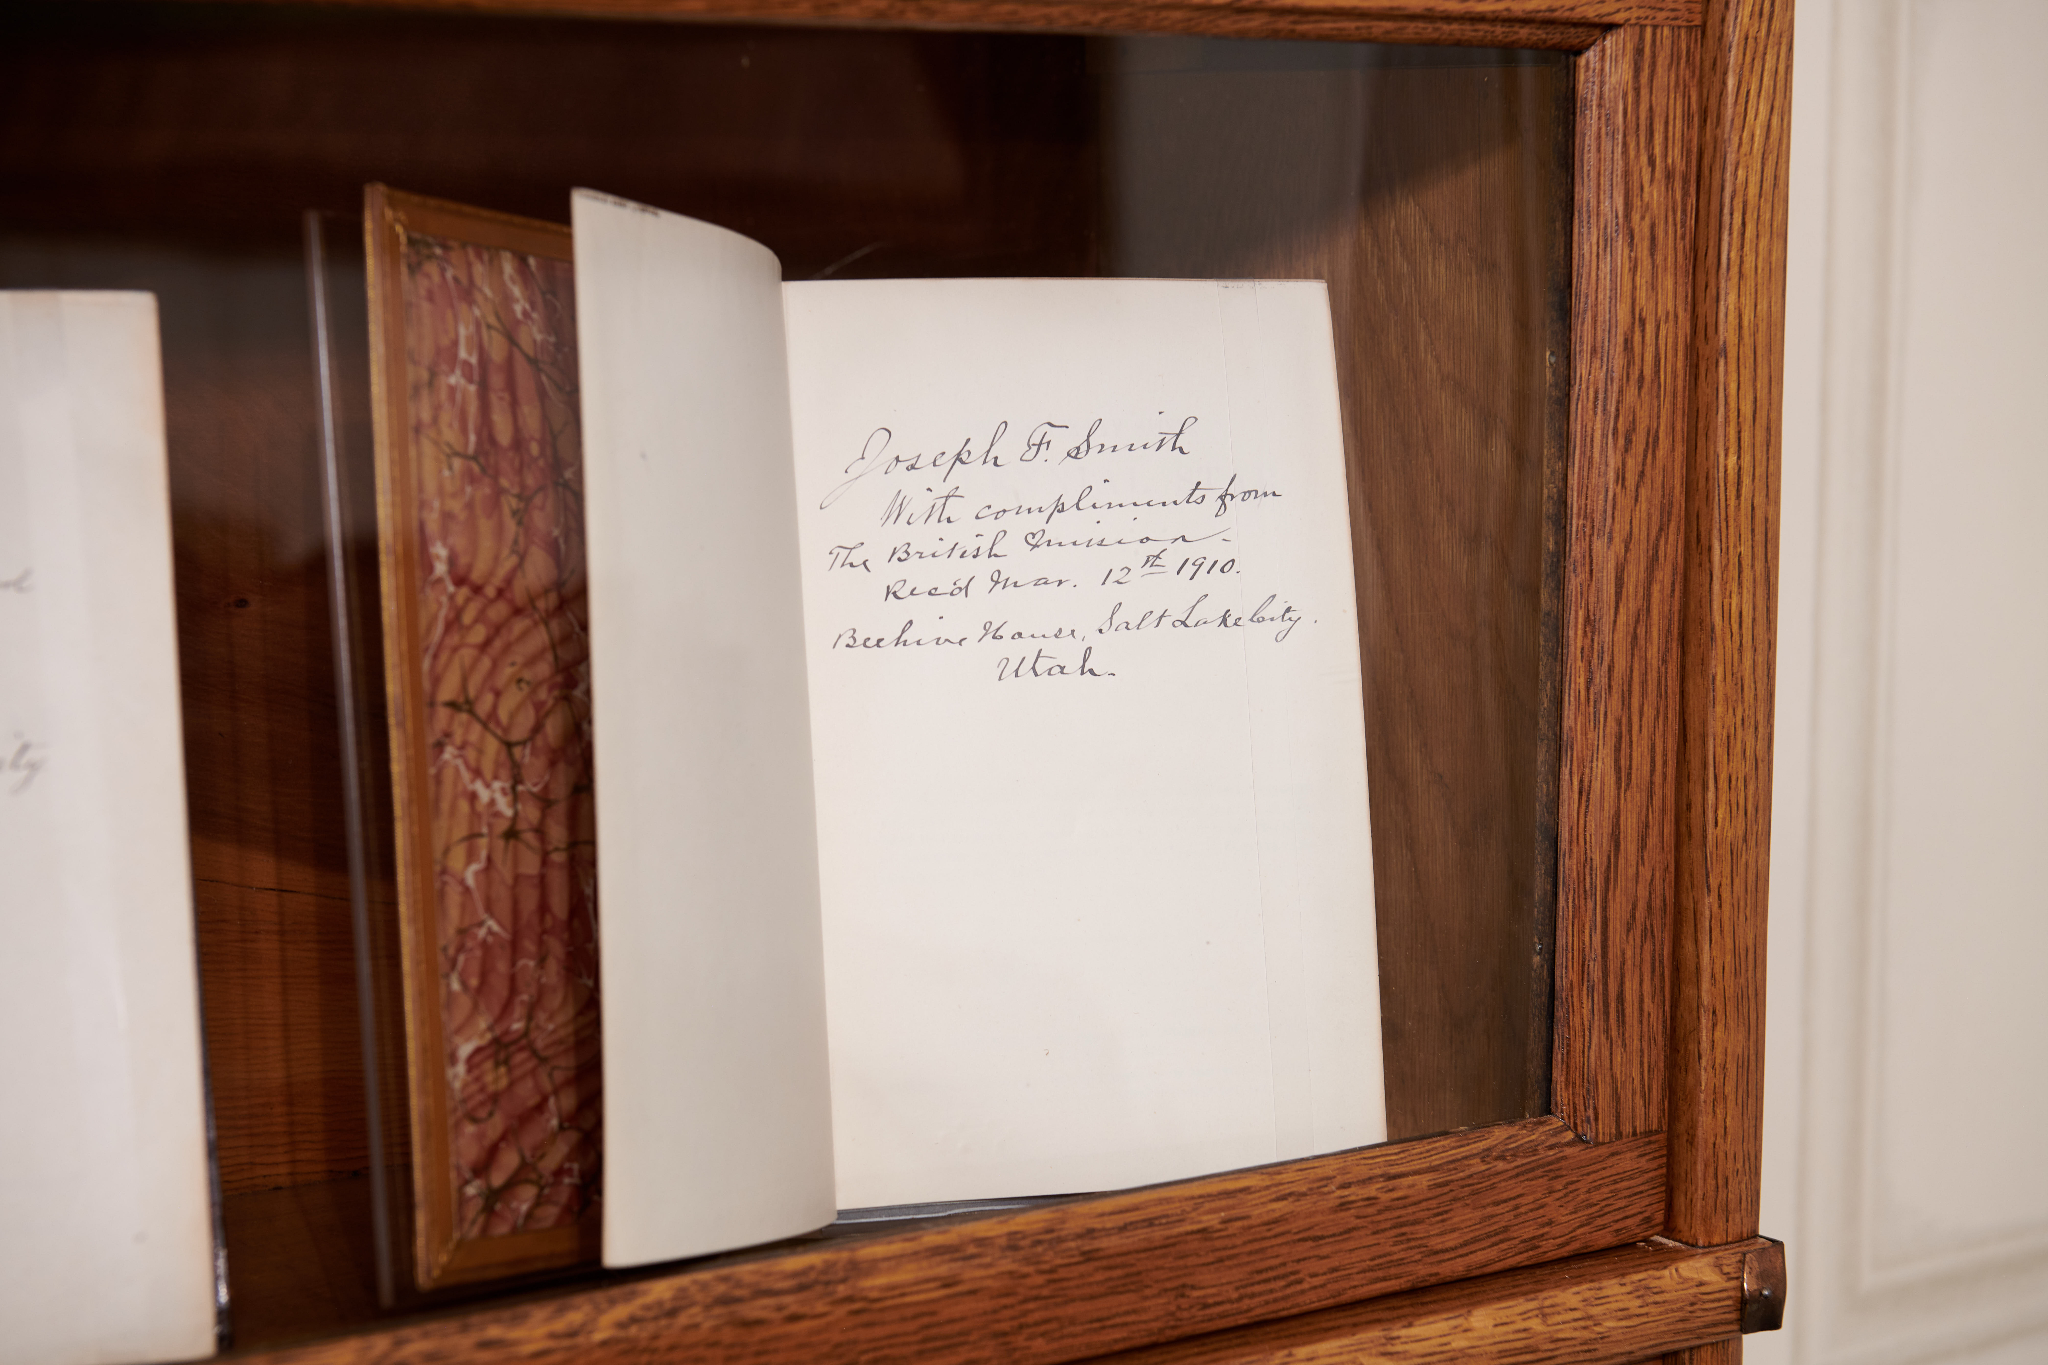 Joseph F. Smith
With compliments from
The British Mission -
Rec'd Mar. 12th 1910.
Beehive House, Salt Lake City.
Utah.